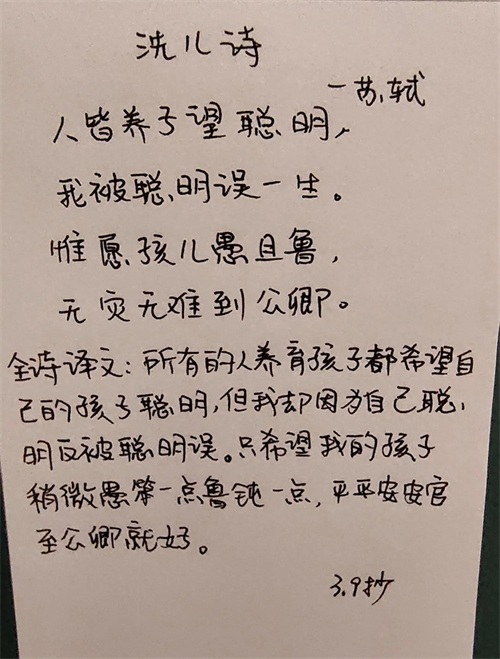 洗儿诗
一苏轼
人皆养子望聪明，
我被聪明误一生。
惟愿孩儿愚且鲁，
无灾无难到公卿。
全诗译文：所有的人养育孩子都希望自
己的孩子聪明，但我却因为自己聪
明反被聪明误。只希望我的孩子
稍微愚笨一点鲁钝一点，平平安安官
至公卿就好。
3.9抄